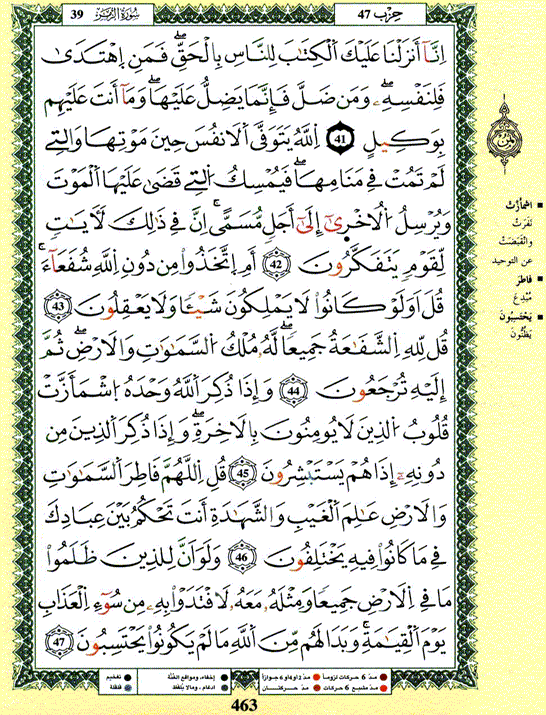 39 سُورَةُ الزُّمَرِ حِزْب 47
اِنَّآ أَنزَلْنَا عَلَيْكَ اَ۬لْكِتَٰبَ لِلنَّاسِ بِالْحَقِّۖ فَمَنِ اِ۪هْتَد۪ىٰ
فَلِنَفْسِهِۦۖ وَمَن ضَلَّ فَإِنَّمَا يَضِلُّ عَلَيْهَاۖ وَمَآ أَنتَ عَلَيْهِم
بِوَكِيلٍۖ 41 اِ۬للَّهُ يَتَوَفَّى اَ۬لَانفُسَ حِينَ مَوْتِهَا وَالتِے
لَمْ تَمُتْ فِے مَنَامِهَاۖ فَيُمْسِكُ اُ۬لتِے قَض۪ىٰ عَلَيْهَا اَ۬لْمَوْتَ
وَيُرْسِلُ اُ۬لُاخْر۪ىٰٓ إِلَىٰٓ أَجَلٖ مُّسَمًّىۖ اِنَّ فِے ذَٰلِكَ لَأٓيَٰتٖ
لِّقَوْمٖ يَتَفَكَّرُونَۖ 42 أَمِ اِ۪تَّخَذُواْ مِن دُونِ اِ۬للَّهِ شُفَعَآءَۖ
قُلَ اَوَلَوْ كَانُواْ لَا يَمْلِكُونَ شَيْـٔاٗ وَلَا يَعْقِلُونَۖ 43
قُل لِّلهِ اِ۬لشَّفَٰعَةُ جَمِيعاٗۖ لَّهُۥ مُلْكُ اُ۬لسَّمَٰوَٰتِ وَالَارْضِۖ ثُمَّ
إِلَيْهِ تُرْجَعُونَۖ 44 وَإِذَا ذُكِرَ اَ۬للَّهُ وَحْدَهُ اُ۪شْمَأَزَّتْ
قُلُوبُ اُ۬لذِينَ لَا يُومِنُونَ بِالَاخِرَةِۖ وَإِذَا ذُكِرَ اَ۬لذِينَ مِن
دُونِهِۦٓ إِذَا هُمْ يَسْتَبْشِرُونَۖ 45 قُلِ اِ۬للَّهُمَّ فَاطِرَ اَ۬لسَّمَٰوَٰتِ
وَالَارْضِ عَٰلِمَ اَ۬لْغَيْبِ وَالشَّهَٰدَةِ أَنتَ تَحْكُمُ بَيْنَ عِبَادِكَ
فِے مَا كَانُواْ فِيهِ يَخْتَلِفُونَۖ 46 وَلَوَ اَنَّ لِلذِينَ ظَلَمُواْ
مَا فِے اِ۬لَارْضِ جَمِيعاٗ وَمِثْلَهُۥ مَعَهُۥ لَافْتَدَوْاْ بِهِۦ مِن سُوٓءِ اِ۬لْعَذَابِ
يَوْمَ اَ۬لْقِيَٰمَةِۖ وَبَدَا لَهُم مِّنَ اَ۬للَّهِ مَا لَمْ يَكُونُواْ يَحْتَسِبُونَۖ 47
ثُمُن
اشْمَأَزَّتْ
نَفَرَتْ
وانْقَبَضَتْ
عن التوحيد
فَاطِرَ
مُبْدِعَ
يَحْتَسِبُونَ
يَظُنُّونَ
مدّ 6 حركات لزوماً مدّ 2 أو 4 أو 6 جوازاً إخفاء، ومواقع الغُنَّة تفخيم
مدّ مشبع 6 حركات مدّ حركتان إدغام، وما لا يُلفظ قلقلة
463